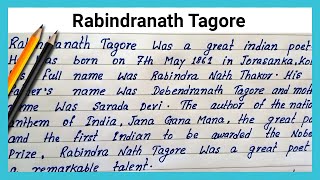 Rabindranath Tagore
Rabindranath Tagore Was a great indian poet
He was born on 7th May 1861 in Jorasanka, Kol
Full name was Rabindra Nath Thakor. His
father's name was Debendranath Tagore and moth
name Was Sarada Devi. The author of the natio
Anthem of India, Jana Gana Mana, the great po
and the first Indian to be awarded the Nobe
Prize, Rabindra Nath Tagore Was a great poet
a remarkable talent.